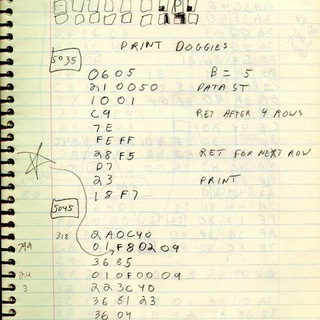 PRINT DOGGIES
5035
0605 B = 5
210050 DATA ST
1001
C9 RET AFTER 4 ROWS
7E
FEFF
28 F5 RET FOR NEXT ROW
D7
23 PRINT
18 F7
5045
318 2A0C40
01F80209
3685
010F0009
3 223C40
3681 23
3604